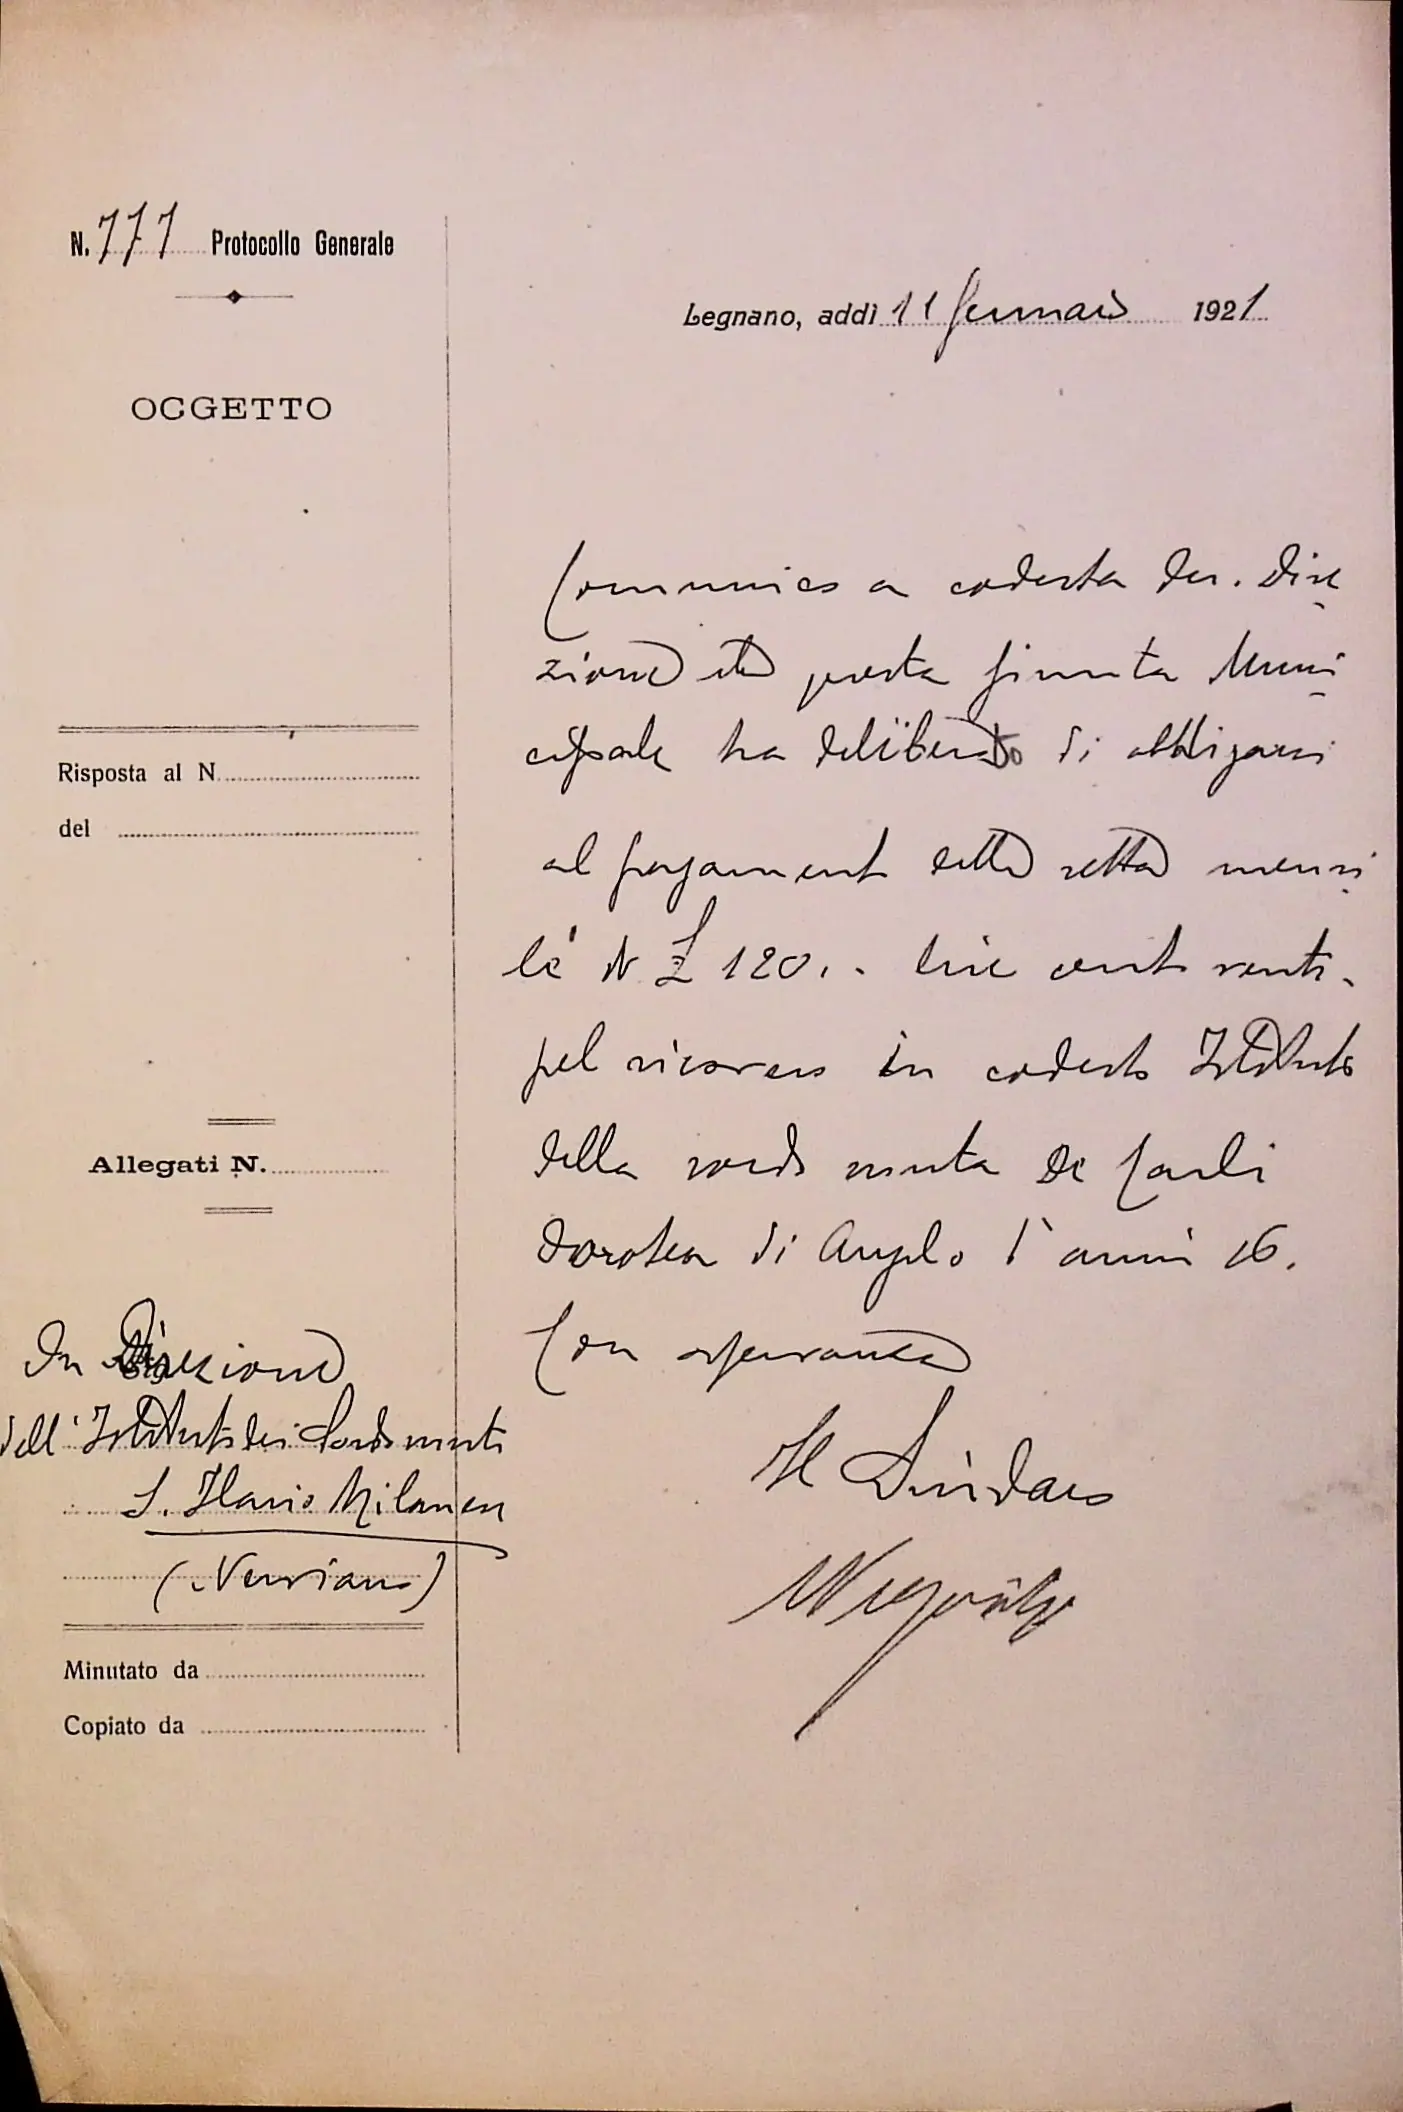 N. 777 Protocollo Generale
Legnano, addì 11 Gennaio 1921
OGGETTO
Comunico a codesta On. Dire
zione che questa Giunta Muni
cipale ha deliberato di obbligarsi
al pagamento della retta mensi
le di L 120.- lire cento venti.
pel ricovero in codesto Istituto
della sordo muta De Carli
Dorotea di Angelo d'anni 16.
Con osservanza
Il Sindaco
Risposta al N.
del
Allegati N.
Direzione
dell'Istituto dei Sordo muti
S. Ilario Milanese
(Nerviano)
Minutato da
Copiato da